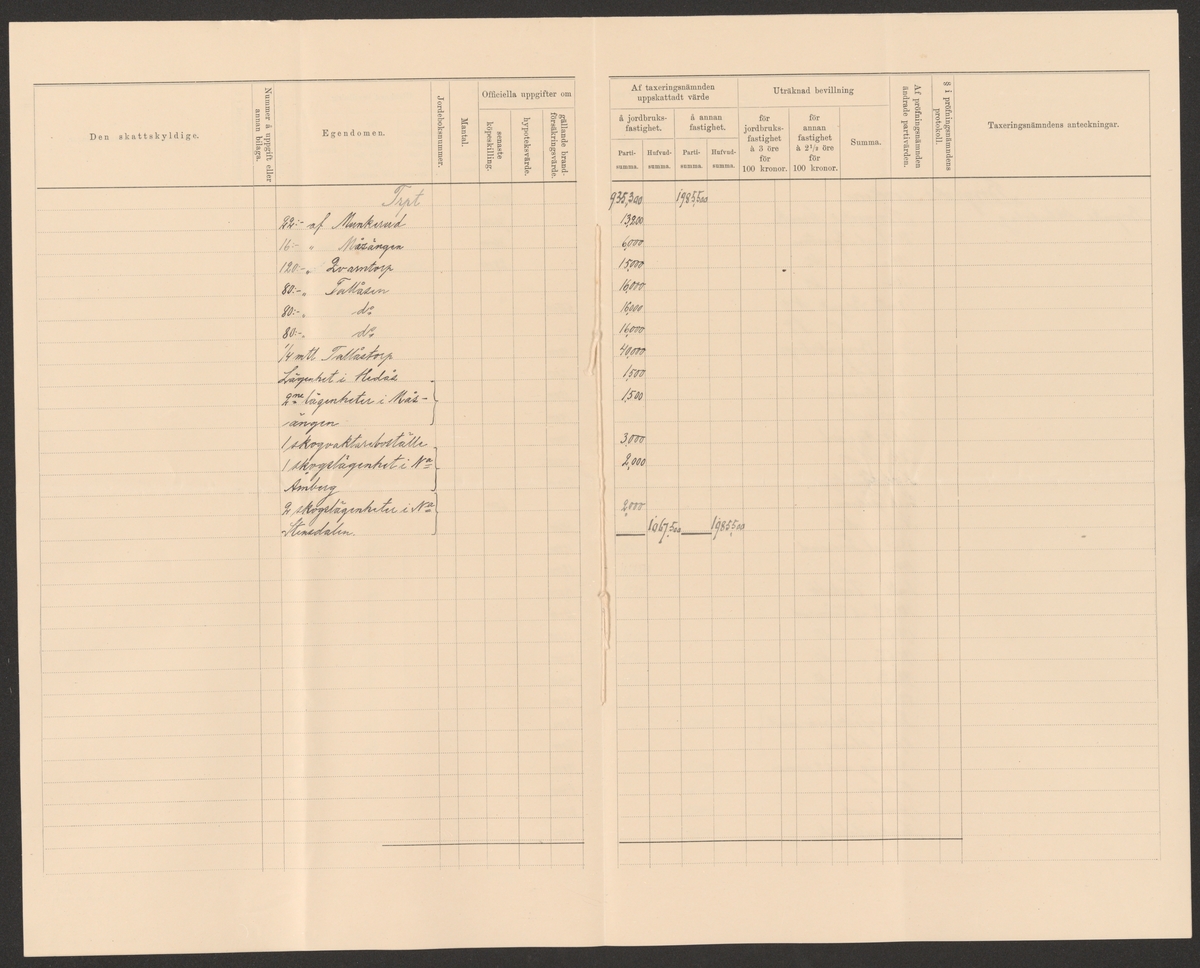 Den skattskyldige.
Nummer å uppgift eller annan bilaga.
Egendomen.
Jordeboksnummer.
Mantal.
Officiella uppgifter om
senaste köpeskilling.
hypoteksvärde.
gällande brandförsäkringsvärde.
Af taxeringsnämnden uppskattadt värde
å jordbruksfastighet.
å annan fastighet.
Partisumma.
Hufvudsumma.
Partisumma.
Hufvudsumma.
Uträknad bevillning
för jordbruksfastighet à 3 öre för 100 kronor.
för annan fastighet à 2¹/₂ öre för 100 kronor.
Summa.
Af pröfningsnämnden ändrade partivärden.
§ i pröfningsnämndens protokoll.
Taxeringsnämndens anteckningar.
Trpt 935,300 198550
22:- af Munkerud 13,200
16:- „ Måsängen 6,000
120:- „ Qvarntorp 15,000
80:- „ Tallåsen 16,000
80:- „ d:o 16,000
80:- „ d:o 16,000
1/4 mtl Tallåstorp 40,000
Lägenhet i Hedås 1,500
2ne lägenheter i Mås- 1,500
ängen
1 skogvaktareboställe 3,000
1 skogslägenhet i Na 2,000
Amberg
2 skogslägenheter i Na 2,000
Stensdalen. 1,067,500 198550